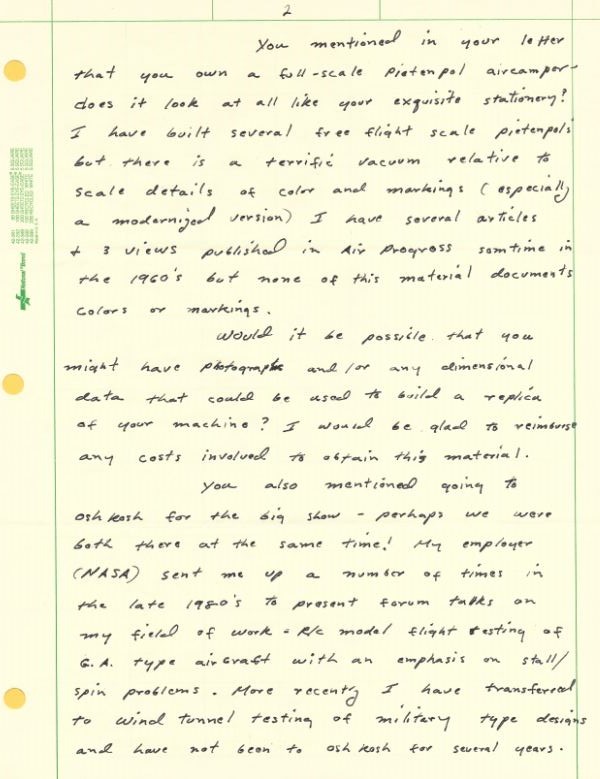 2
You mentioned in your letter
that you own a full-scale pietenpol aircamper-
does it look at all like your exquisite stationery?
I have built several free flight scale pietenpols
but there is a terrific vacuum relative to
scale details of color and markings (especially
a modernized version) I have several articles
+ 3 views published in Air Progress somtime in
the 1960's but none of this material documents
colors or markings.
Would it be possible that you
might have photographs and/or any dimensional
data that could be used to build a replica
of your machine? I would be glad to reimburse
any costs involved to obtain this material.
You also mentioned going to
Oshkosh for the big show - perhaps we were
both there at the same time! My employer
(NASA) sent me up a number of times in
the late 1980's to present forum talks on
my field of work - R/c model flight testing of
G.A. type aircraft with an emphasis on stall/
spin problems. More recently I have transferred
to wind tunnel testing of military type designs
and have not been to Oshkosh for several years.